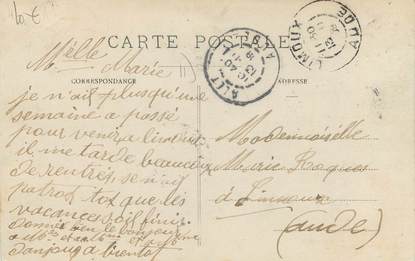 10€
CARTE POSTALE
CORRESPONDANCE
ADRESSE
LIMOUX AUDE
ALET AUDE
Melle Marie
je n'ait plus qu'une
semaine a passé
pour venir a limoux
il me tarde beaucoup
de rentres, se n'ai
pa trop tot que les
vacances soit finir
donnes bien le bonjour
a
a bientot
Mademoiselle
Marie Roques
à Limoux
(aude)